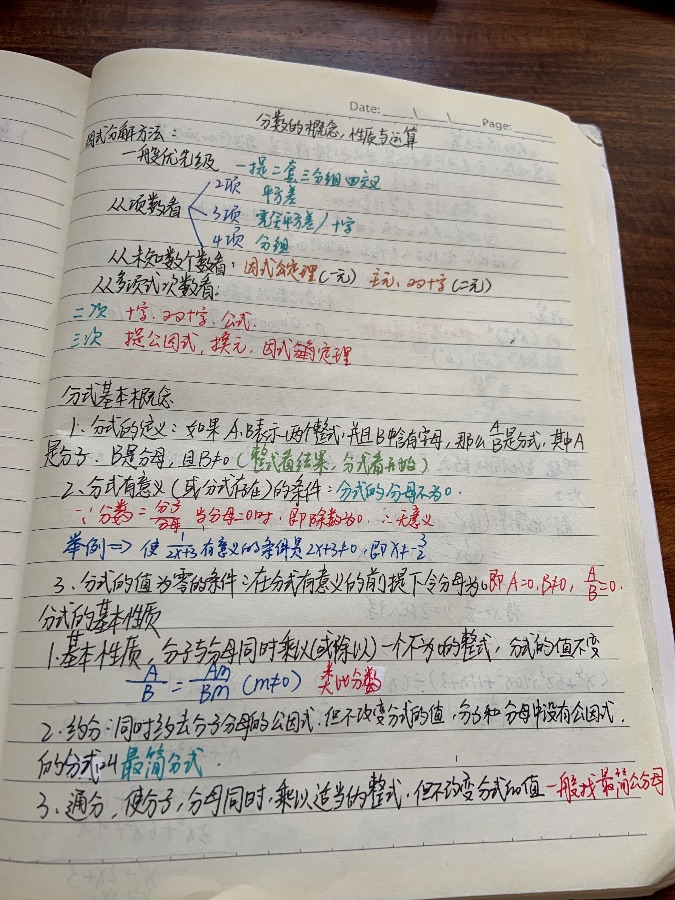 Date:
Page:
分数的概念,性质与运算
因式分解方法:
一般优先级 一提二套三分组四交叉
从项数看 2项 平方差
3项 完全平方差/十字
4项 分组
从未知数个数看: 因式定理(一元) 主元、双十字(二元)
从多项式次数看:
二次 十字、双十字、公式.
三次 提公因式,换元、因式定理
分式基本概念
1、分式的定义:如果A、B表示两个整式,并且B中含有字母,那么A/B是分式,其中A
是分子、B是分母,且B≠0(整式看结果,分式看开始)
2、分式有意义(或分式存在)的条件:分式的分母不为0.
∵分数=分子/分母 当分母=0时,即除数为0,∴无意义
举例⇒ 使1/2x+3有意义的条件是2x+3≠0,即x≠-3/2
3、分式的值为零的条件:在分式有意义的前提下令分母为0即A=0,B≠0,A/B=0.
分式的基本性质
1.基本性质,分子与分母同时乘以(或除以)一个不为0的整式,分式的值不变
A/B=Am/Bm(m≠0) 类比分数
2、约分:同时约去分子分母的公因式,但不改变分式的值,分子和分母中没有公因式,
的分式叫最简分式.
3、通分,使分子,分母同时,乘以适当的整式,但不改变分式的值 一般找最简公分母